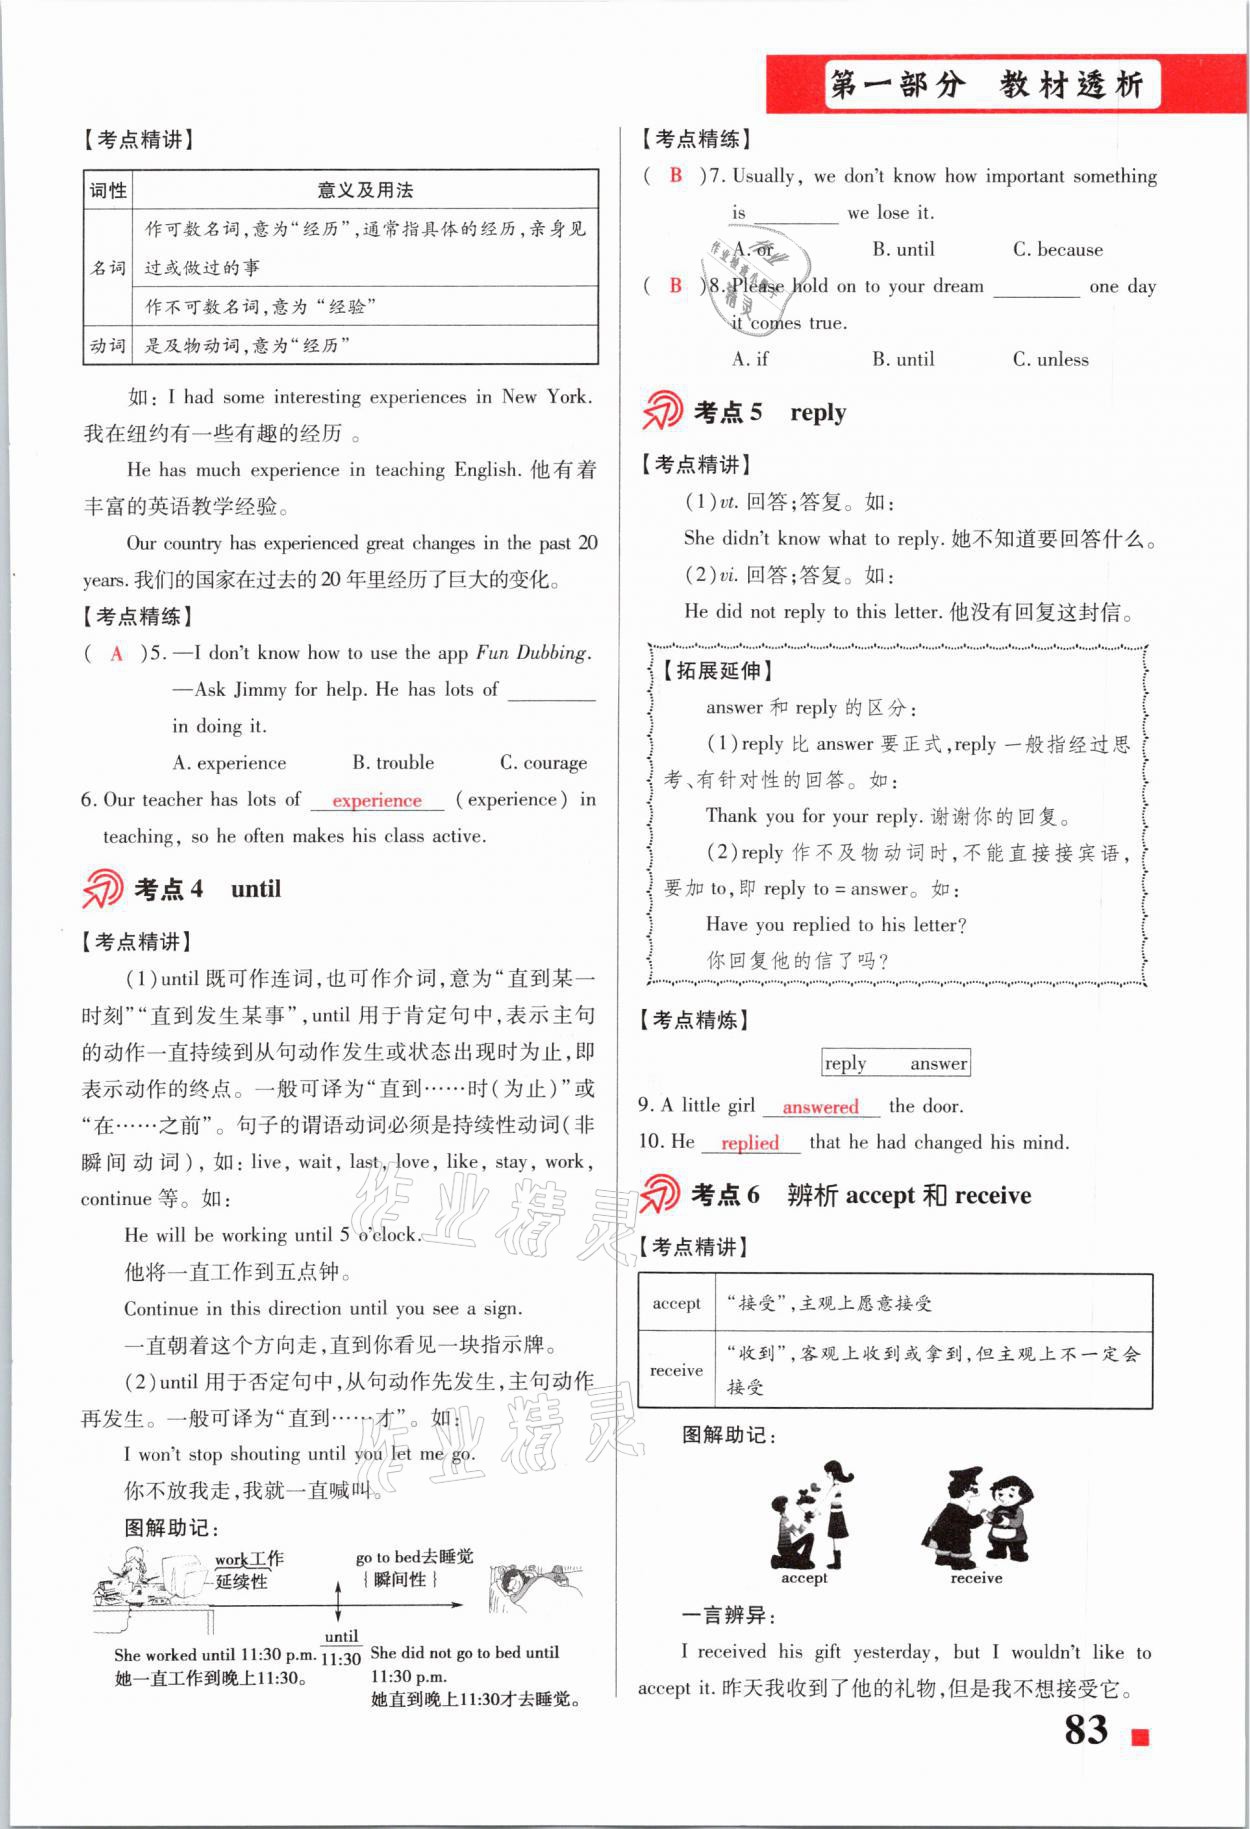 第一部分 教材透析
【考点精讲】
词性 意义及用法
名词 作可数名词,意为“经历”,通常指具体的经历,亲身见
过或做过的事
作不可数名词,意为“经验”
动词 是及物动词,意为“经历”
如: I had some interesting experiences in New York.
我在纽约有一些有趣的经历 。
He has much experience in teaching English. 他有着
丰富的英语教学经验。
Our country has experienced great changes in the past 20
years. 我们的国家在过去的 20 年里经历了巨大的变化。
【考点精练】
( A )5. —I don't know how to use the app Fun Dubbing.
—Ask Jimmy for help. He has lots of ________
in doing it.
A. experience B. trouble C. courage
6. Our teacher has lots of experience (experience) in
teaching, so he often makes his class active.
考点 4 until
【考点精讲】
(1)until 既可作连词,也可作介词,意为“直到某一
时刻”“直到发生某事”,until 用于肯定句中,表示主句
的动作一直持续到从句动作发生或状态出现时为止,即
表示动作的终点。一般可译为“直到……时(为止)”或
“在……之前”。句子的谓语动词必须是持续性动词(非
瞬间动词),如: live, wait, last, love, like, stay, work,
continue 等。如:
He will be working until 5 o'clock.
他将一直工作到五点钟。
Continue in this direction until you see a sign.
一直朝着这个方向走,直到你看见一块指示牌。
(2)until 用于否定句中,从句动作先发生,主句动作
再发生。一般可译为“直到……才”。如:
I won't stop shouting until you let me go.
你不放我走,我就一直喊叫。
图解助记:
work工作 go to bed去睡觉
延续性 {瞬间性}
until
11:30
She worked until 11:30 p.m.
她一直工作到晚上11:30。
She did not go to bed until
11:30 p.m.
她直到晚上11:30才去睡觉。
【考点精练】
( B )7. Usually, we don't know how important something
is ________ we lose it.
A. or B. until C. because
( B )8. Please hold on to your dream ________ one day
it comes true.
A. if B. until C. unless
考点 5 reply
【考点精讲】
(1)vt. 回答;答复。如:
She didn't know what to reply. 她不知道要回答什么。
(2)vi. 回答;答复。如:
He did not reply to this letter. 他没有回复这封信。
【拓展延伸】
answer 和 reply 的区分:
(1)reply 比 answer 要正式,reply 一般指经过思
考、有针对性的回答。如:
Thank you for your reply. 谢谢你的回复。
(2)reply 作不及物动词时,不能直接接宾语,
要加 to,即 reply to = answer。如:
Have you replied to his letter?
你回复他的信了吗?
【考点精炼】
reply answer
9. A little girl answered the door.
10. He replied that he had changed his mind.
考点 6 辨析 accept 和 receive
【考点精讲】
accept “接受”,主观上愿意接受
receive “收到”,客观上收到或拿到,但主观上不一定会
接受
图解助记:
accept receive
一言辨异:
I received his gift yesterday, but I wouldn't like to
accept it. 昨天我收到了他的礼物,但是我不想接受它。
83
作业精灵
作业精灵